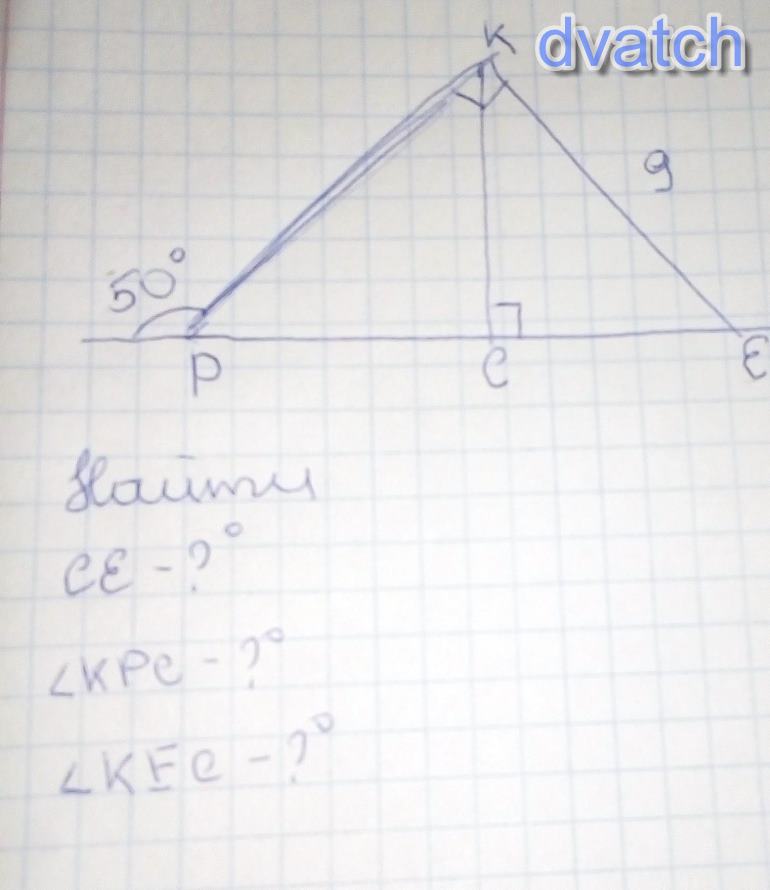 K dvatch
9
50°
P C E
Найти
CE - ?°
∠KPC - ?°
∠KEC - ?°